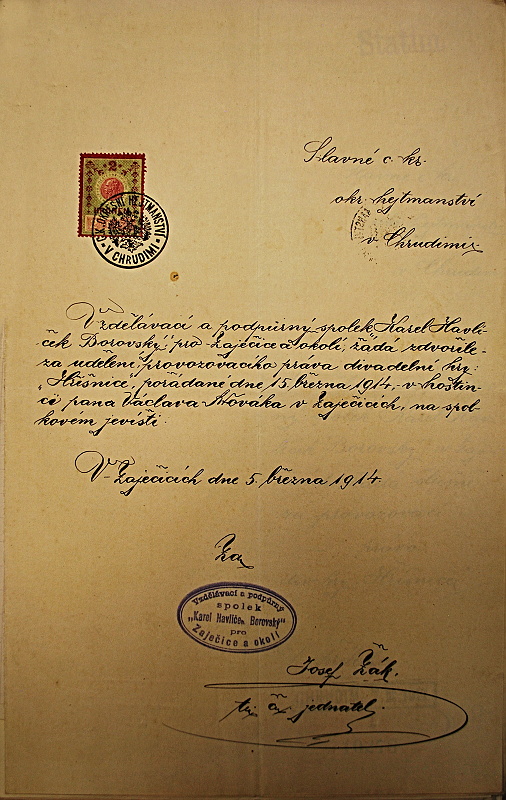 2
C.K. OKRESNÍ HEJTMANSTVÍ
V CHRUDIMI
Slavné c. kr.
okr. hejtmanství
v Chrudimi
Vzdělávací a podpůrný spolek „Karel Havlí-
ček Borovský" pro Zaječice a okolí, žádá zdvořile
za udělení provozovacího práva divadelní hry:
„Hříšnice, pořádané dne 15. března 1914, v hostin-
ci pana Václava Nováka v Zaječicích, na spol-
kovém jevišti.
V Zaječicích dne 5. března 1914.
Za
Vzdělávací a podpůrný
spolek
„Karel Havlíček Borovský"
pro
Zaječice a okolí
Josef Žák.
jednatel.